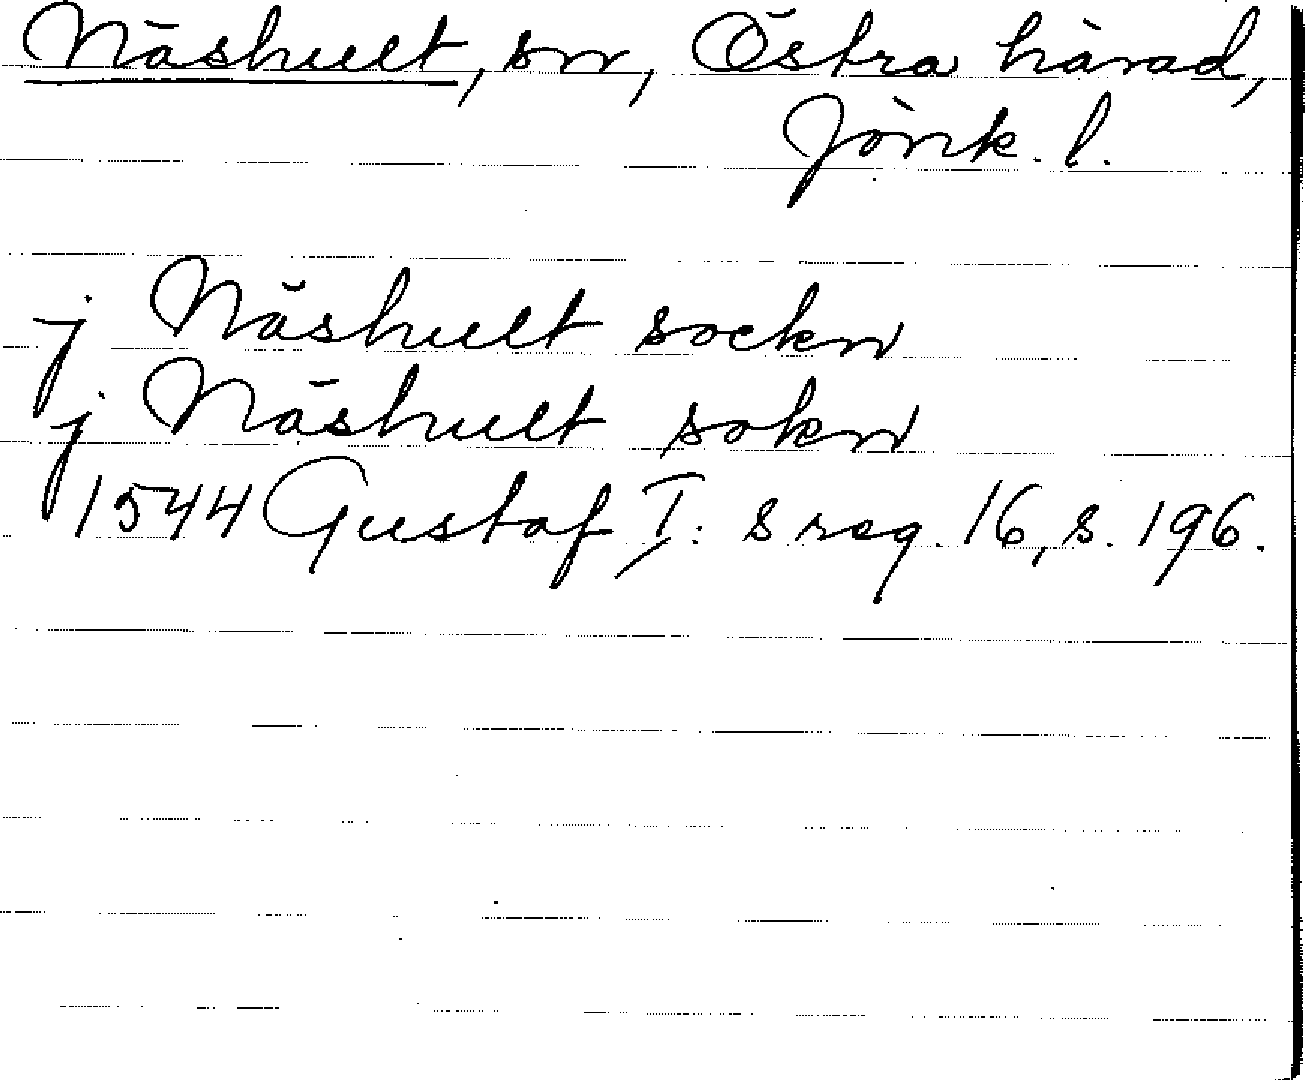 Näshult, sn, Östra härad,
Jönk. l.
j Näshult sockn
j Näshult sokn
1544 Gustaf I: s reg. 16, s. 196.